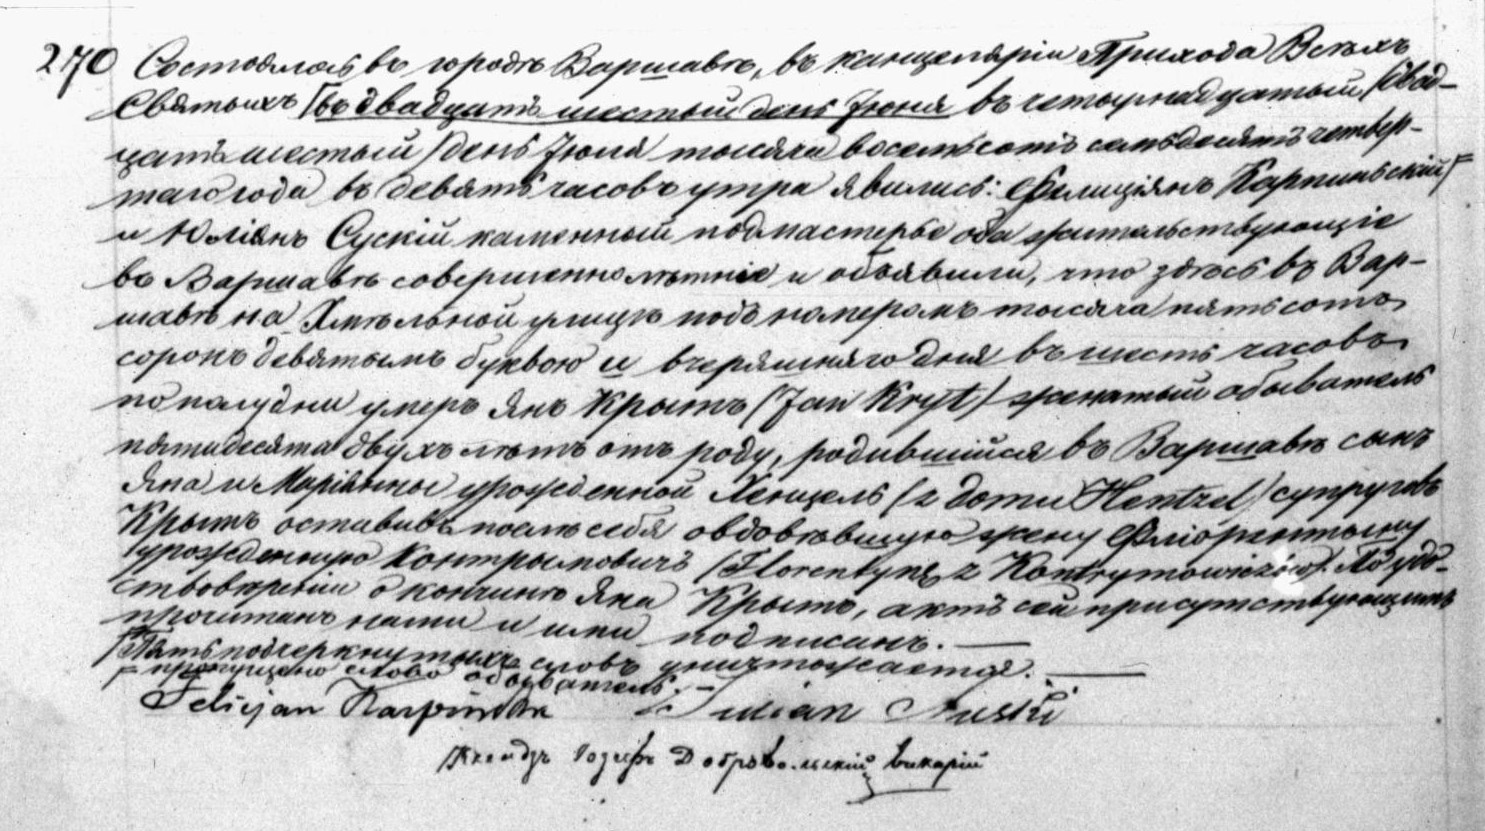 270 Состоялось въ городѣ Варшавѣ, въ канцеляріи Прихода Всѣхъ
Святыхъ въ двадцать шестый день Іюня въ четырнадцатый /двад-
цать шестый/ день Іюля тысяча восемьсотъ семьдесятъ четвер-
таго года въ девять часовъ утра явились: Фелиціянъ Карпинскій /=
и Юліянъ Сускій каменный подмастерье оба жительствующіе
въ Варшавѣ совершеннолѣтніе и объявили, что здѣсь въ Вар-
шавѣ на Хмѣльной улицѣ подъ номеромъ тысяча пятьсотъ
сорокъ девятымъ буквою и вчерашняго дня въ шесть часовъ
по полудни умеръ Янъ Крытъ (Jan Kryt) женатый обыватель
пятидесяти двухъ лѣтъ отъ роду, родившійся въ Варшавѣ сынъ
Яна и Маріянны урожденной Хенцель (z domu Hentzel) супруговъ
Крытъ оставивъ послѣ себя овдовѣвшую жену Флёрентыну
урожденную Контрымовичъ (Florentynę z Kontrymowiczów). По удо-
ствовѣреніи о кончинѣ Яна Крытъ, актъ сей присутствующимъ
прочитанъ нами и ими подписанъ. —
Пять подчеркнутыхъ словъ уничтожается. —
= пропущено слово обыватель. —
Felicjan Karpiński Julian Suski
Ксёндзъ Іозефъ Добровольскій викарій